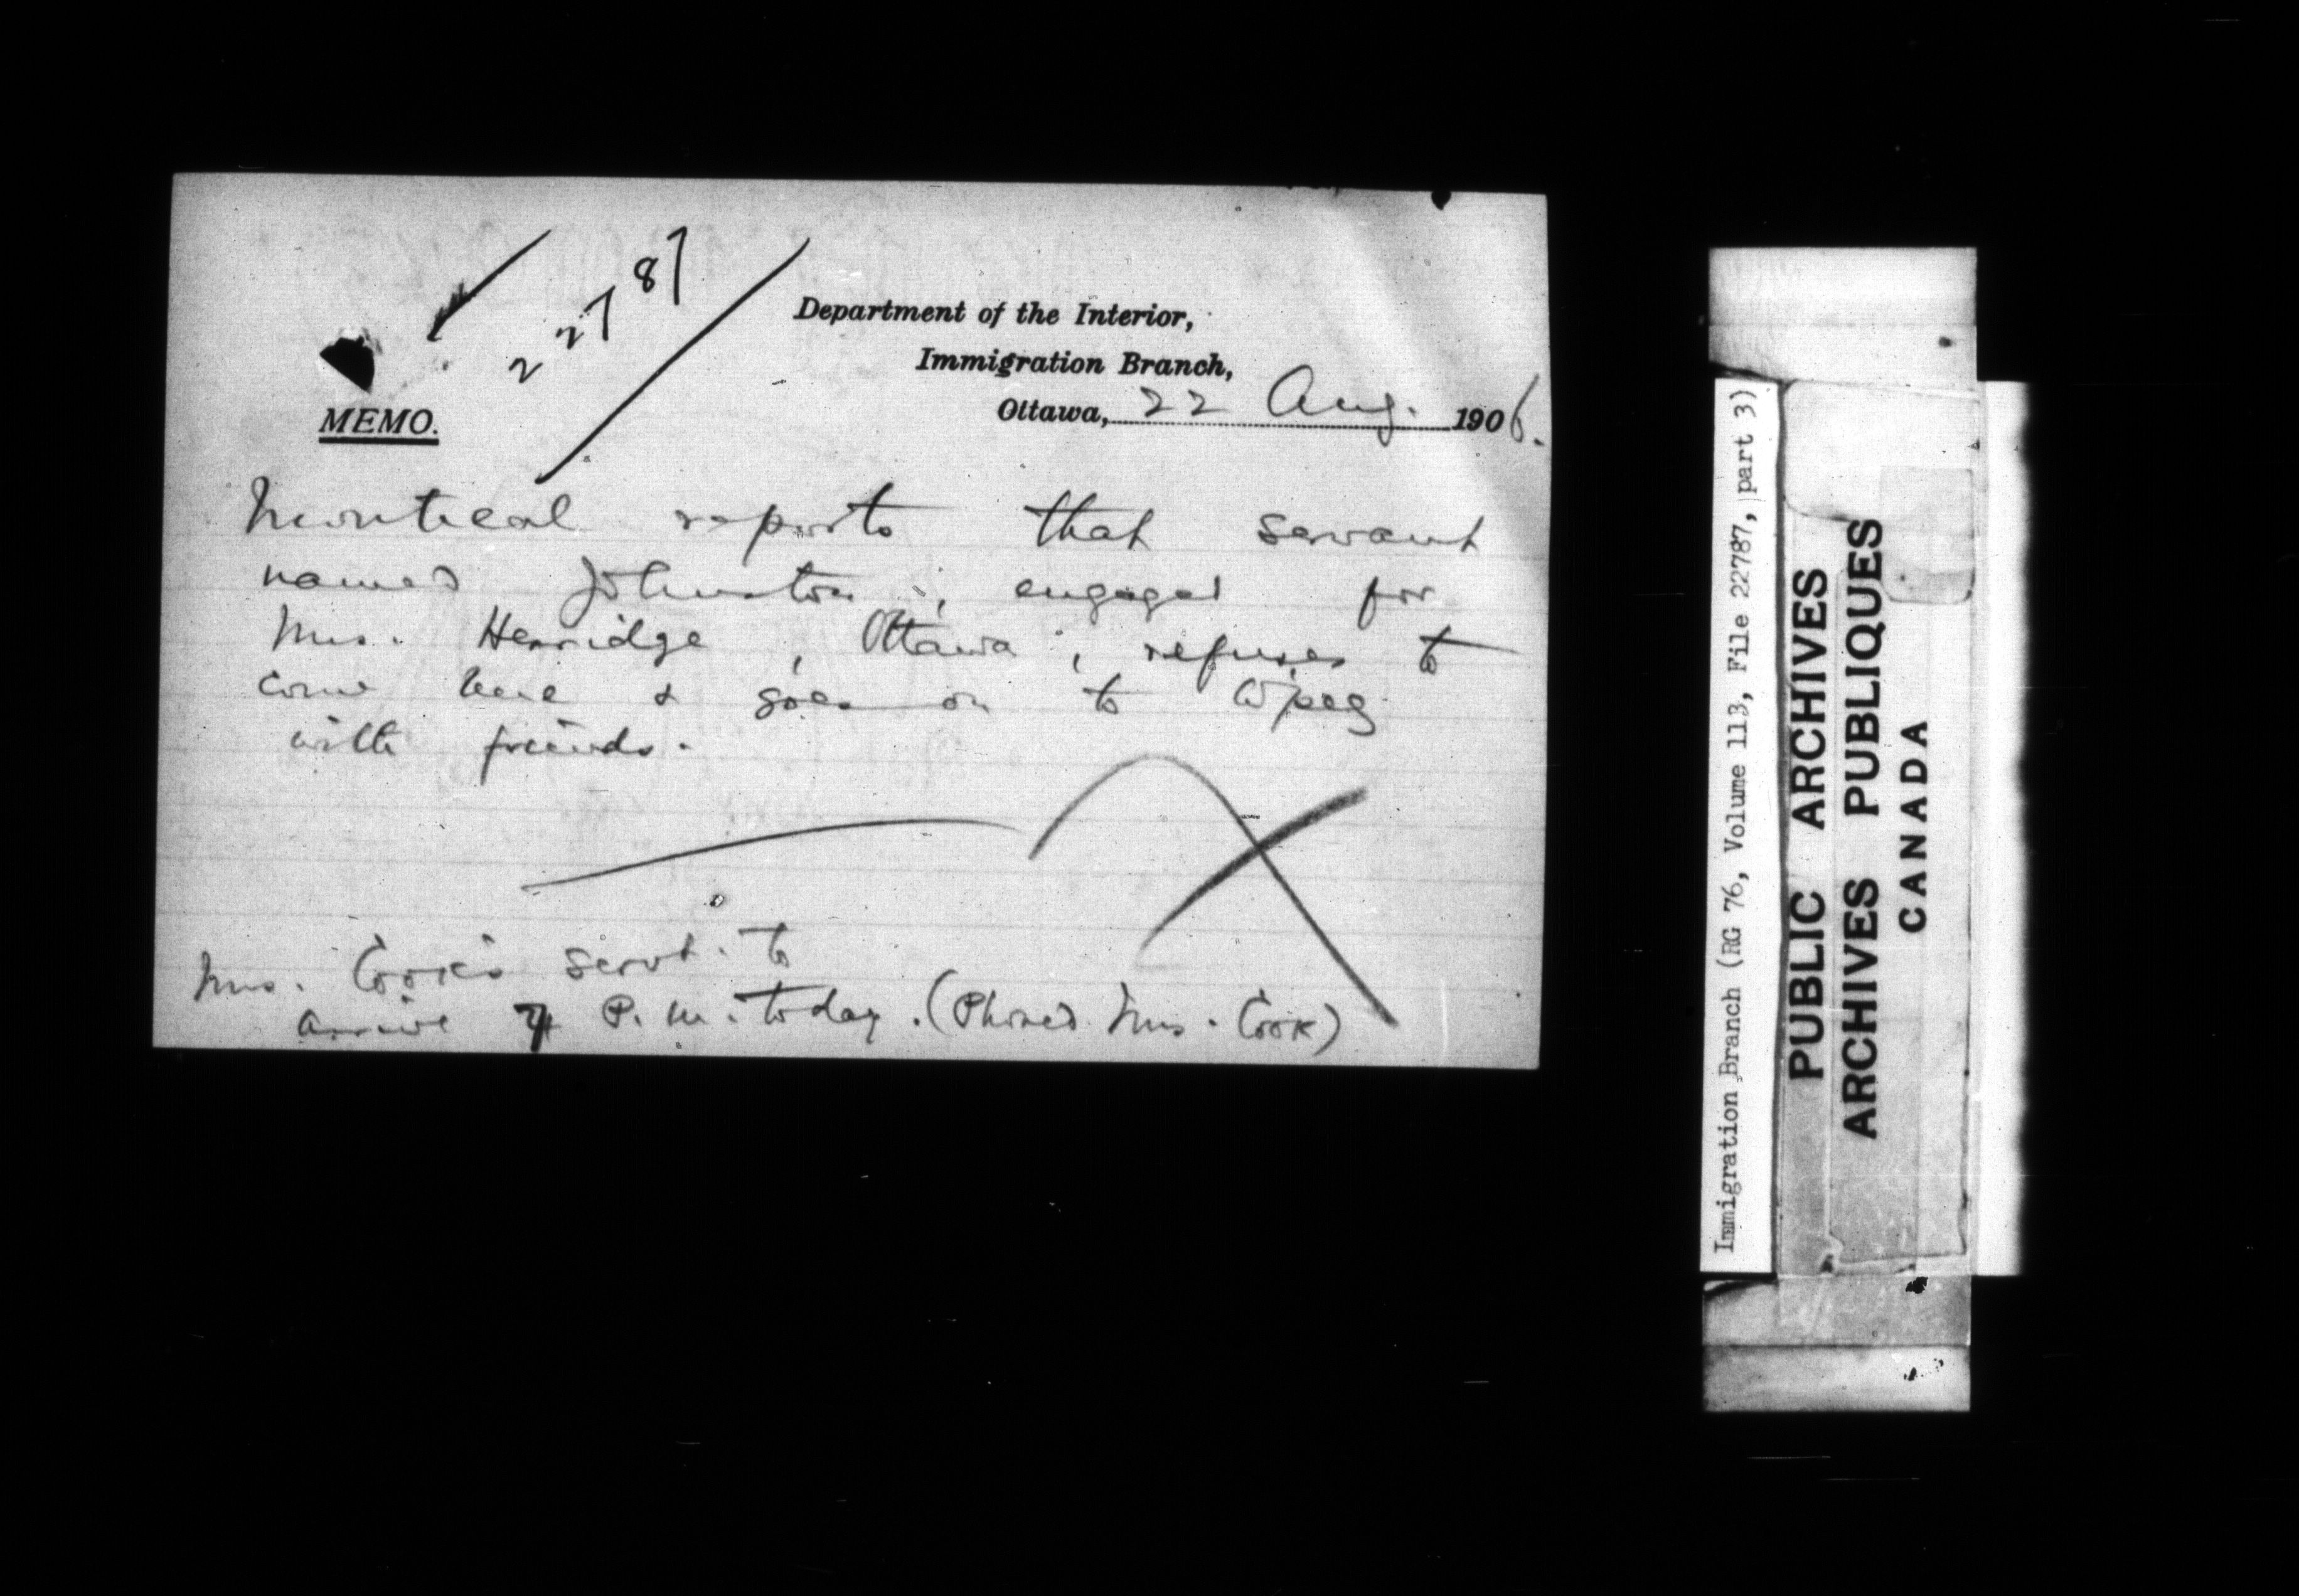 22787
Department of the Interior,
Immigration Branch,
Ottawa, 22 Aug. 1906.
MEMO.
Montreal reports that servant
named Johnston, engaged for
Mrs. Herridge, Ottawa, refuses to
come here & goes on to Wpeg
with friends.
Mrs. Cook's servt. to
arrive P.M. today. (Phoned Mrs. Cook)
Immigration Branch (RG 76, Volume 113, File 22787, part 3)
PUBLIC ARCHIVES
ARCHIVES PUBLIQUES
CANADA